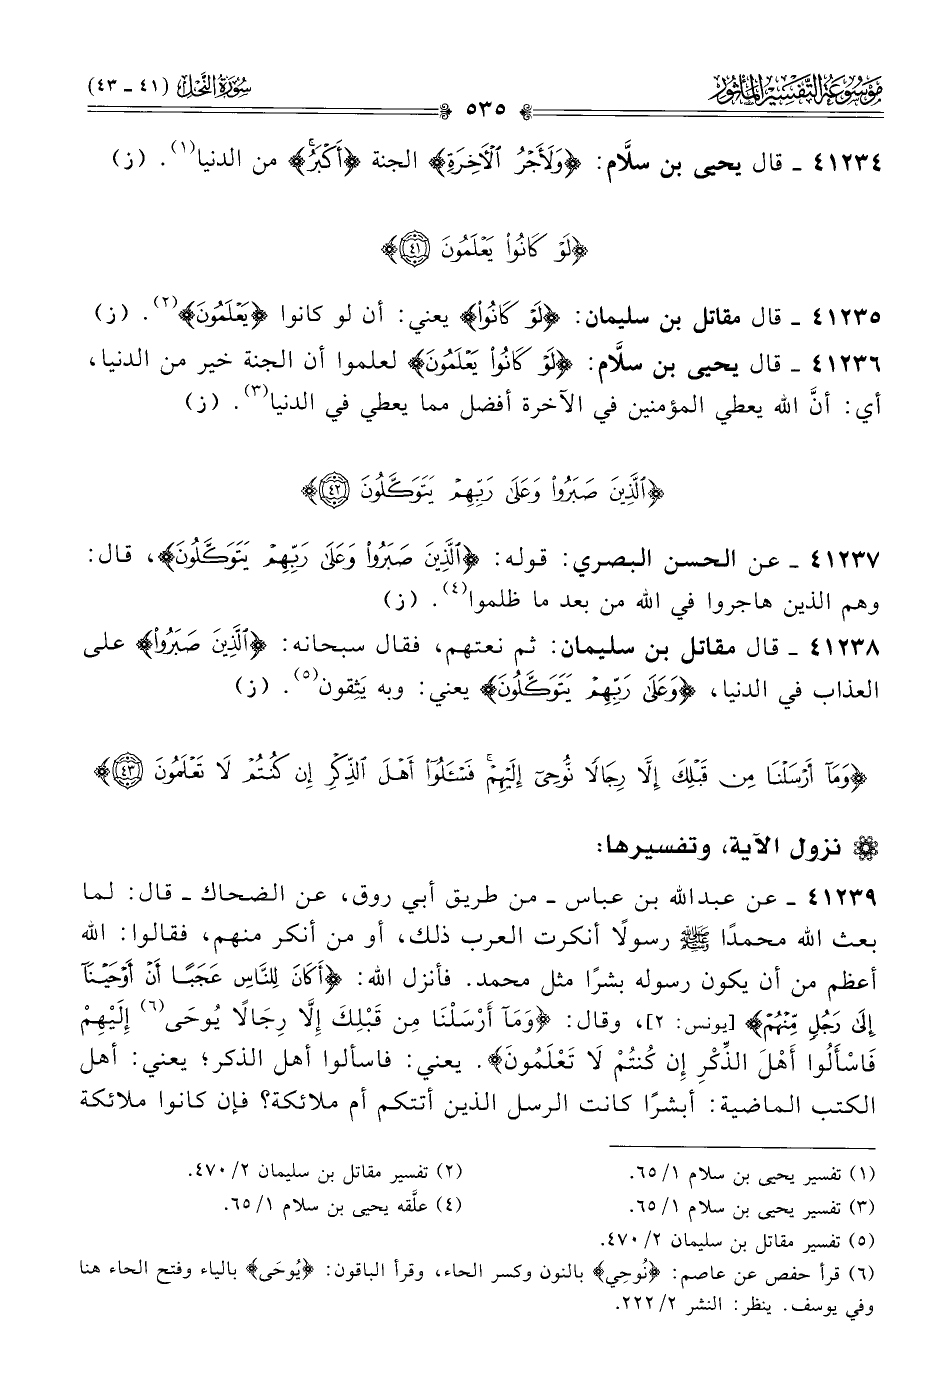 موسوعة التفسير المأثور
سورة النحل (٤١ - ٤٣)
٥٣٥
٤١٢٣٤ ـ قال يحيى بن سلَّام: ﴿وَلَأَجْرُ ٱلْآخِرَةِ﴾ الجنة ﴿أَكْبَرُۚ﴾ من الدنيا(١). (ز)
﴿لَوْ كَانُوا۟ يَعْلَمُونَ ٤١﴾
٤١٢٣٥ ـ قال مقاتل بن سليمان: ﴿لَوْ كَانُوا۟﴾ يعني: أن لو كانوا ﴿يَعْلَمُونَ﴾(٢). (ز)
٤١٢٣٦ ـ قال يحيى بن سلَّام: ﴿لَوْ كَانُوا۟ يَعْلَمُونَ﴾ لعلموا أن الجنة خير من الدنيا،
أي: أنَّ الله يعطي المؤمنين في الآخرة أفضل مما يعطي في الدنيا(٣). (ز)
﴿ٱلَّذِينَ صَبَرُوا۟ وَعَلَىٰ رَبِّهِمْ يَتَوَكَّلُونَ ٤٢﴾
٤١٢٣٧ ـ عن الحسن البصري: قوله: ﴿ٱلَّذِينَ صَبَرُوا۟ وَعَلَىٰ رَبِّهِمْ يَتَوَكَّلُونَ﴾، قال:
وهم الذين هاجروا في الله من بعد ما ظلموا(٤). (ز)
٤١٢٣٨ ـ قال مقاتل بن سليمان: ثم نعتهم، فقال سبحانه: ﴿ٱلَّذِينَ صَبَرُوا۟﴾ على
العذاب في الدنيا، ﴿وَعَلَىٰ رَبِّهِمْ يَتَوَكَّلُونَ﴾ يعني: وبه يَثِقون(٥). (ز)
﴿وَمَآ أَرْسَلْنَا مِن قَبْلِكَ إِلَّا رِجَالًا نُّوحِىٓ إِلَيْهِمْۚ فَسْـَٔلُوٓا۟ أَهْلَ ٱلذِّكْرِ إِن كُنتُمْ لَا تَعْلَمُونَ ٤٣﴾
نزول الآية، وتفسيرها:
٤١٢٣٩ ـ عن عبدالله بن عباس ـ من طريق أبي روق، عن الضحاك ـ قال: لما
بعث الله محمدًا ﷺ رسولًا أنكرت العرب ذلك، أو من أنكر منهم، فقالوا: الله
أعظم من أن يكون رسوله بشرًا مثل محمد. فأنزل الله: ﴿أَكَانَ لِلنَّاسِ عَجَبًا أَنْ أَوْحَيْنَآ
إِلَىٰ رَجُلٍ مِّنْهُمْ﴾ [يونس: ٢]، وقال: ﴿وَمَآ أَرْسَلْنَا مِن قَبْلِكَ إِلَّا رِجَالًا يُوحَى(٦) إِلَيْهِمْ
فَاسْأَلُوا أَهْلَ الذِّكْرِ إِن كُنتُمْ لَا تَعْلَمُونَ﴾. يعني: فاسألوا أهل الذكر؛ يعني: أهل
الكتب الماضية: أبشرًا كانت الرسل الذين أتتكم أم ملائكة؟ فإن كانوا ملائكة
(١) تفسير يحيى بن سلام ١/ ٦٥.
(٢) تفسير مقاتل بن سليمان ٢/ ٤٧٠.
(٣) تفسير يحيى بن سلام ١/ ٦٥.
(٤) علَّقه يحيى بن سلام ١/ ٦٥.
(٥) تفسير مقاتل بن سليمان ٢/ ٤٧٠.
(٦) قرأ حفص عن عاصم: ﴿نُوحِي﴾ بالنون وكسر الحاء، وقرأ الباقون: ﴿يُوحَى﴾ بالياء وفتح الحاء هنا
وفي يوسف. ينظر: النشر ٢/ ٢٢٢.